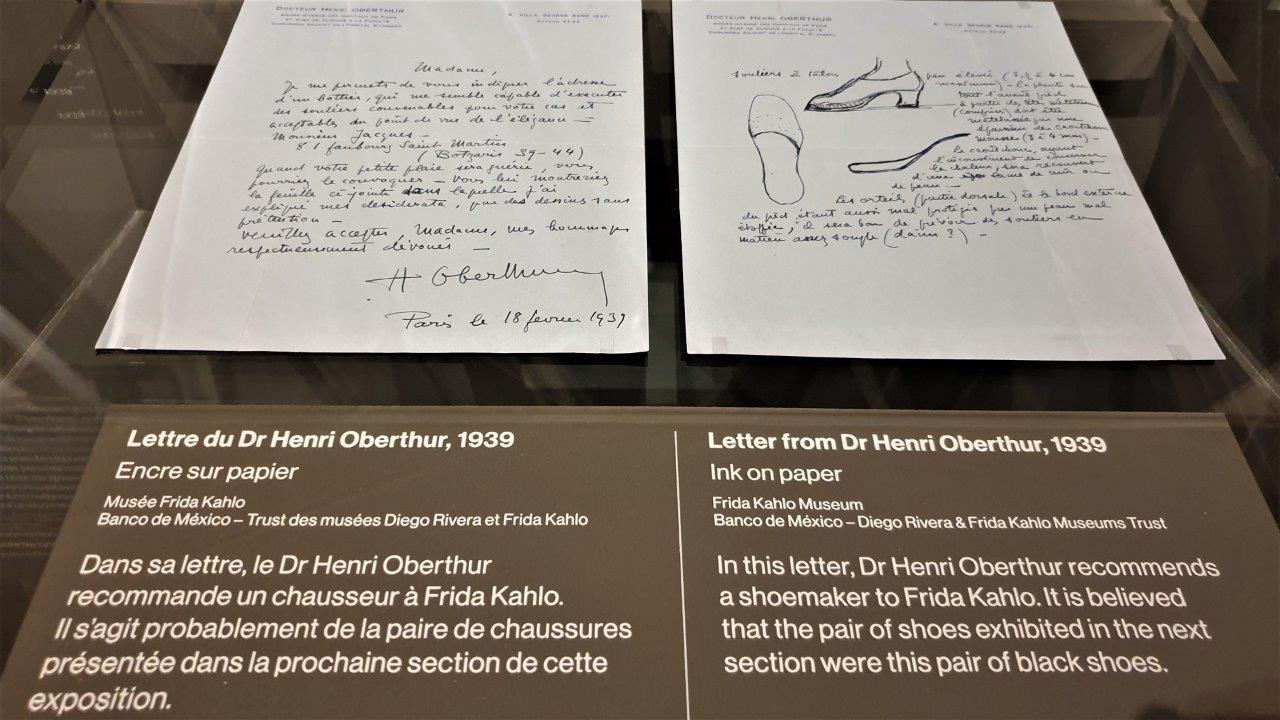 DOCTEUR HENRI OBERTHUR
ANCIEN INTERNE DES HOPITAUX DE PARIS
ET CHEF DE CLINIQUE A LA FACULTÉ
CHIRURGIEN ADJOINT DE L'HOPITAL St JOSEPH
VILLA GEORGE SAND (XVIe)
Madame,
Je me permets de vous indiquer l'adresse
d'un bottier, qui me semble capable d'executer
des souliers convenables pour votre cas et
acceptables du point de vue de l'élégance —
Monsieur Jacques —
81 faubourg Saint Martin
(Botzaris 39-44)
Quand votre petite plaie sera guérie vous
pourriez le convoquer — vous lui montreriez
la feuille ci-jointe dans laquelle j'ai
expliqué mes desiderata, par des dessins sans
prétention —
veuillez accepter, Madame, mes hommages
respectueusement dévoués —
H Oberthur
Paris le 18 fevrier 1939
DOCTEUR HENRI OBERTHUR
ANCIEN INTERNE DES HOPITAUX DE PARIS
ET CHEF DE CLINIQUE A LA FACULTÉ
CHIRURGIEN ADJOINT DE L'HOPITAL St JOSEPH
VILLA GEORGE SAND (XVIe)
souliers à talons
peu élevés (3 ½ à 4 cm
maximum) — la plante sur
tout l'avant pied
à partir de
doit être
matelassée par une
épaisseur de caoutchouc
mousse (3 à 4 mm) —
le caoutchouc, ayant
l'inconvénient de
la chaleur, sera recouvert
d'une lame de cuir ou
de peau —
Les orteils (partie dorsale) et le bord externe
du pied étant aussi mal protégés par une peau mal
étoffée, il sera bon de prévoir des souliers en
matière assez souple (daim ?) —
Lettre du Dr Henri Oberthur, 1939
Encre sur papier
Musée Frida Kahlo
Banco de México – Trust des musées Diego Rivera et Frida Kahlo
Dans sa lettre, le Dr Henri Oberthur
recommande un chausseur à Frida Kahlo.
Il s'agit probablement de la paire de chaussures
présentée dans la prochaine section de cette
exposition.
Letter from Dr Henri Oberthur, 1939
Ink on paper
Frida Kahlo Museum
Banco de México – Diego Rivera & Frida Kahlo Museums Trust
In this letter, Dr Henri Oberthur recommends
a shoemaker to Frida Kahlo. It is believed
that the pair of shoes exhibited in the next
section were this pair of black shoes.